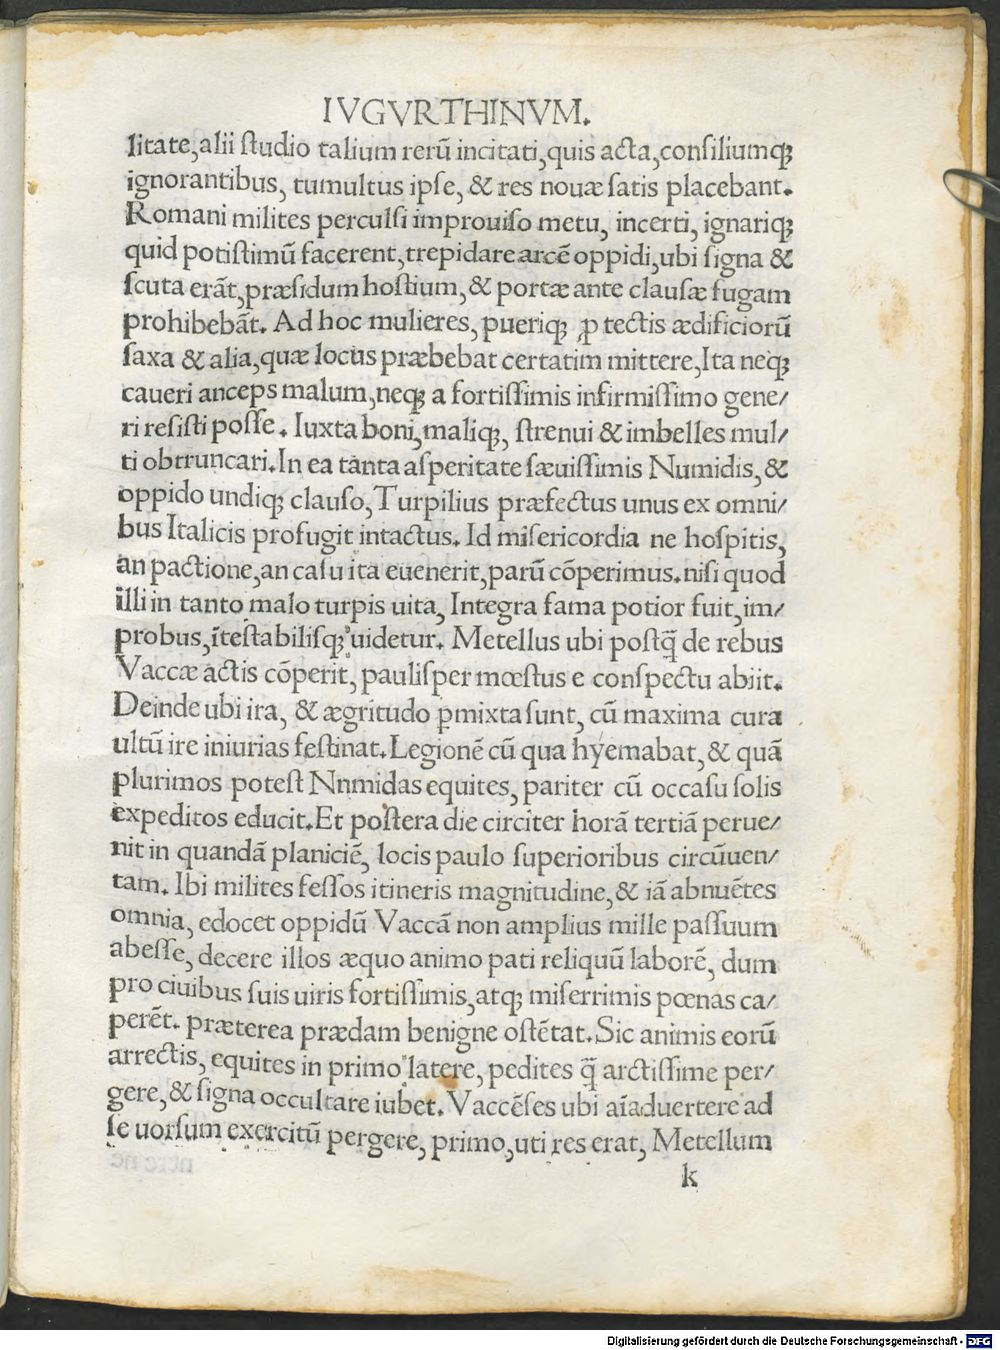 IVGVRTHINVM.
litate, alii ſtudio talium rerū incitati, quis acta, conſiliumq;
ignorantibus, tumultus ipſe, & res nouæ ſatis placebant.
Romani milites perculſi improuiſo metu, incerti, ignariq;
quid potiſtimū facerent, trepidare arcē oppidi, ubi ſigna &
ſcuta erāt, præſidum hoſtium, & portæ ante clauſæ fugam
prohibebāt. Ad hoc mulieres, pueriq; ꝓ tectis ædificiorū
ſaxa & alia, quæ locus præbebat certatim mittere, Ita neq;
caueri anceps malum, neq; a fortiſſimis infirmiſſimo gene/
ri reſiſti poſſe. Iuxta boni, maliq;, ſtrenui & imbelles mul/
ti obtruncari. In ea tanta aſperitate ſæuiſſimis Numidis, &
oppido undiq; clauſo, Turpilius præfectus unus ex omni/
bus Italicis profugit intactus. Id miſericordia ne hoſpitis,
an pactione, an caſu ita euenerit, parū cōperimus. niſi quod
illi in tanto malo turpis uita, Integra fama potior fuit, im/
probus, īteſtabiliſq; uidetur. Metellus ubi poſtq̄ de rebus
Vaccæ actis cōperit, pauliſper mœſtus e conſpectu abiit.
Deinde ubi ira, & ægritudo ꝑmixta ſunt, cū maxima cura
ultū ire iniurias feſtinat. Legionē cū qua hyemabat, & quā
plurimos poteſt Nnmidas equites, pariter cū occaſu ſolis
expeditos educit. Et poſtera die circiter horā tertiā perue/
nit in quandā planiciē, locis paulo ſuperioribus circūuen/
tam. Ibi milites feſſos itineris magnitudine, & iā abnuētes
omnia, edocet oppidū Vaccā non amplius mille paſſuum
abeſſe, decere illos æquo animo pati reliquū laborē, dum
pro ciuibus ſuis uiris fortiſſimis, atq; miſerrimis pœnas ca/
perēt. præterea prædam benigne oſtētat. Sic animis eorū
arrectis, equites in primo latere, pedites q̄ arctiſſime per/
gere, & ſigna occultare iubet. Vaccēſes ubi aīaduertere ad
ſe uorſum exercitū pergere, primo, uti res erat, Metellum
k
Digitalisierung gefördert durch die Deutsche Forschungsgemeinschaft - DFG